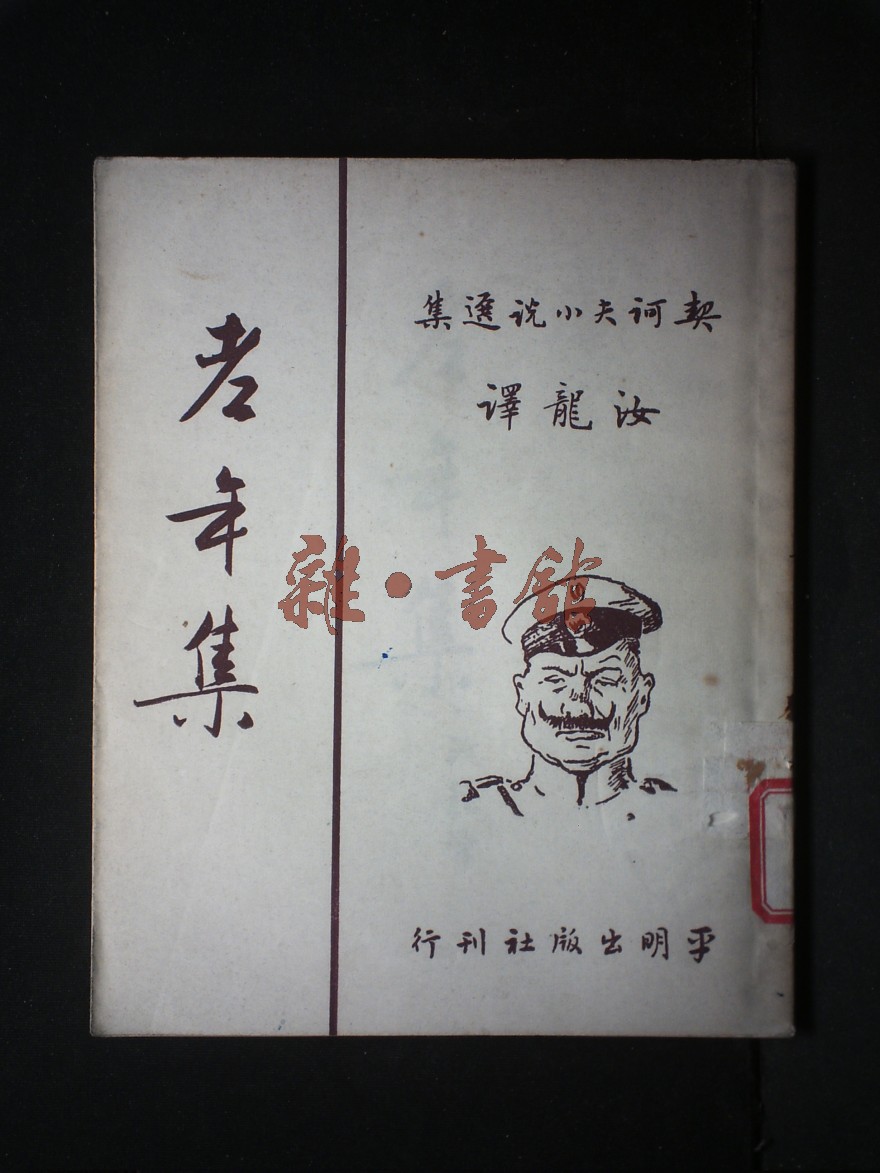 契訶夫小说選集
汝龍譯
老年集
雜·書館
平明出版社刊行